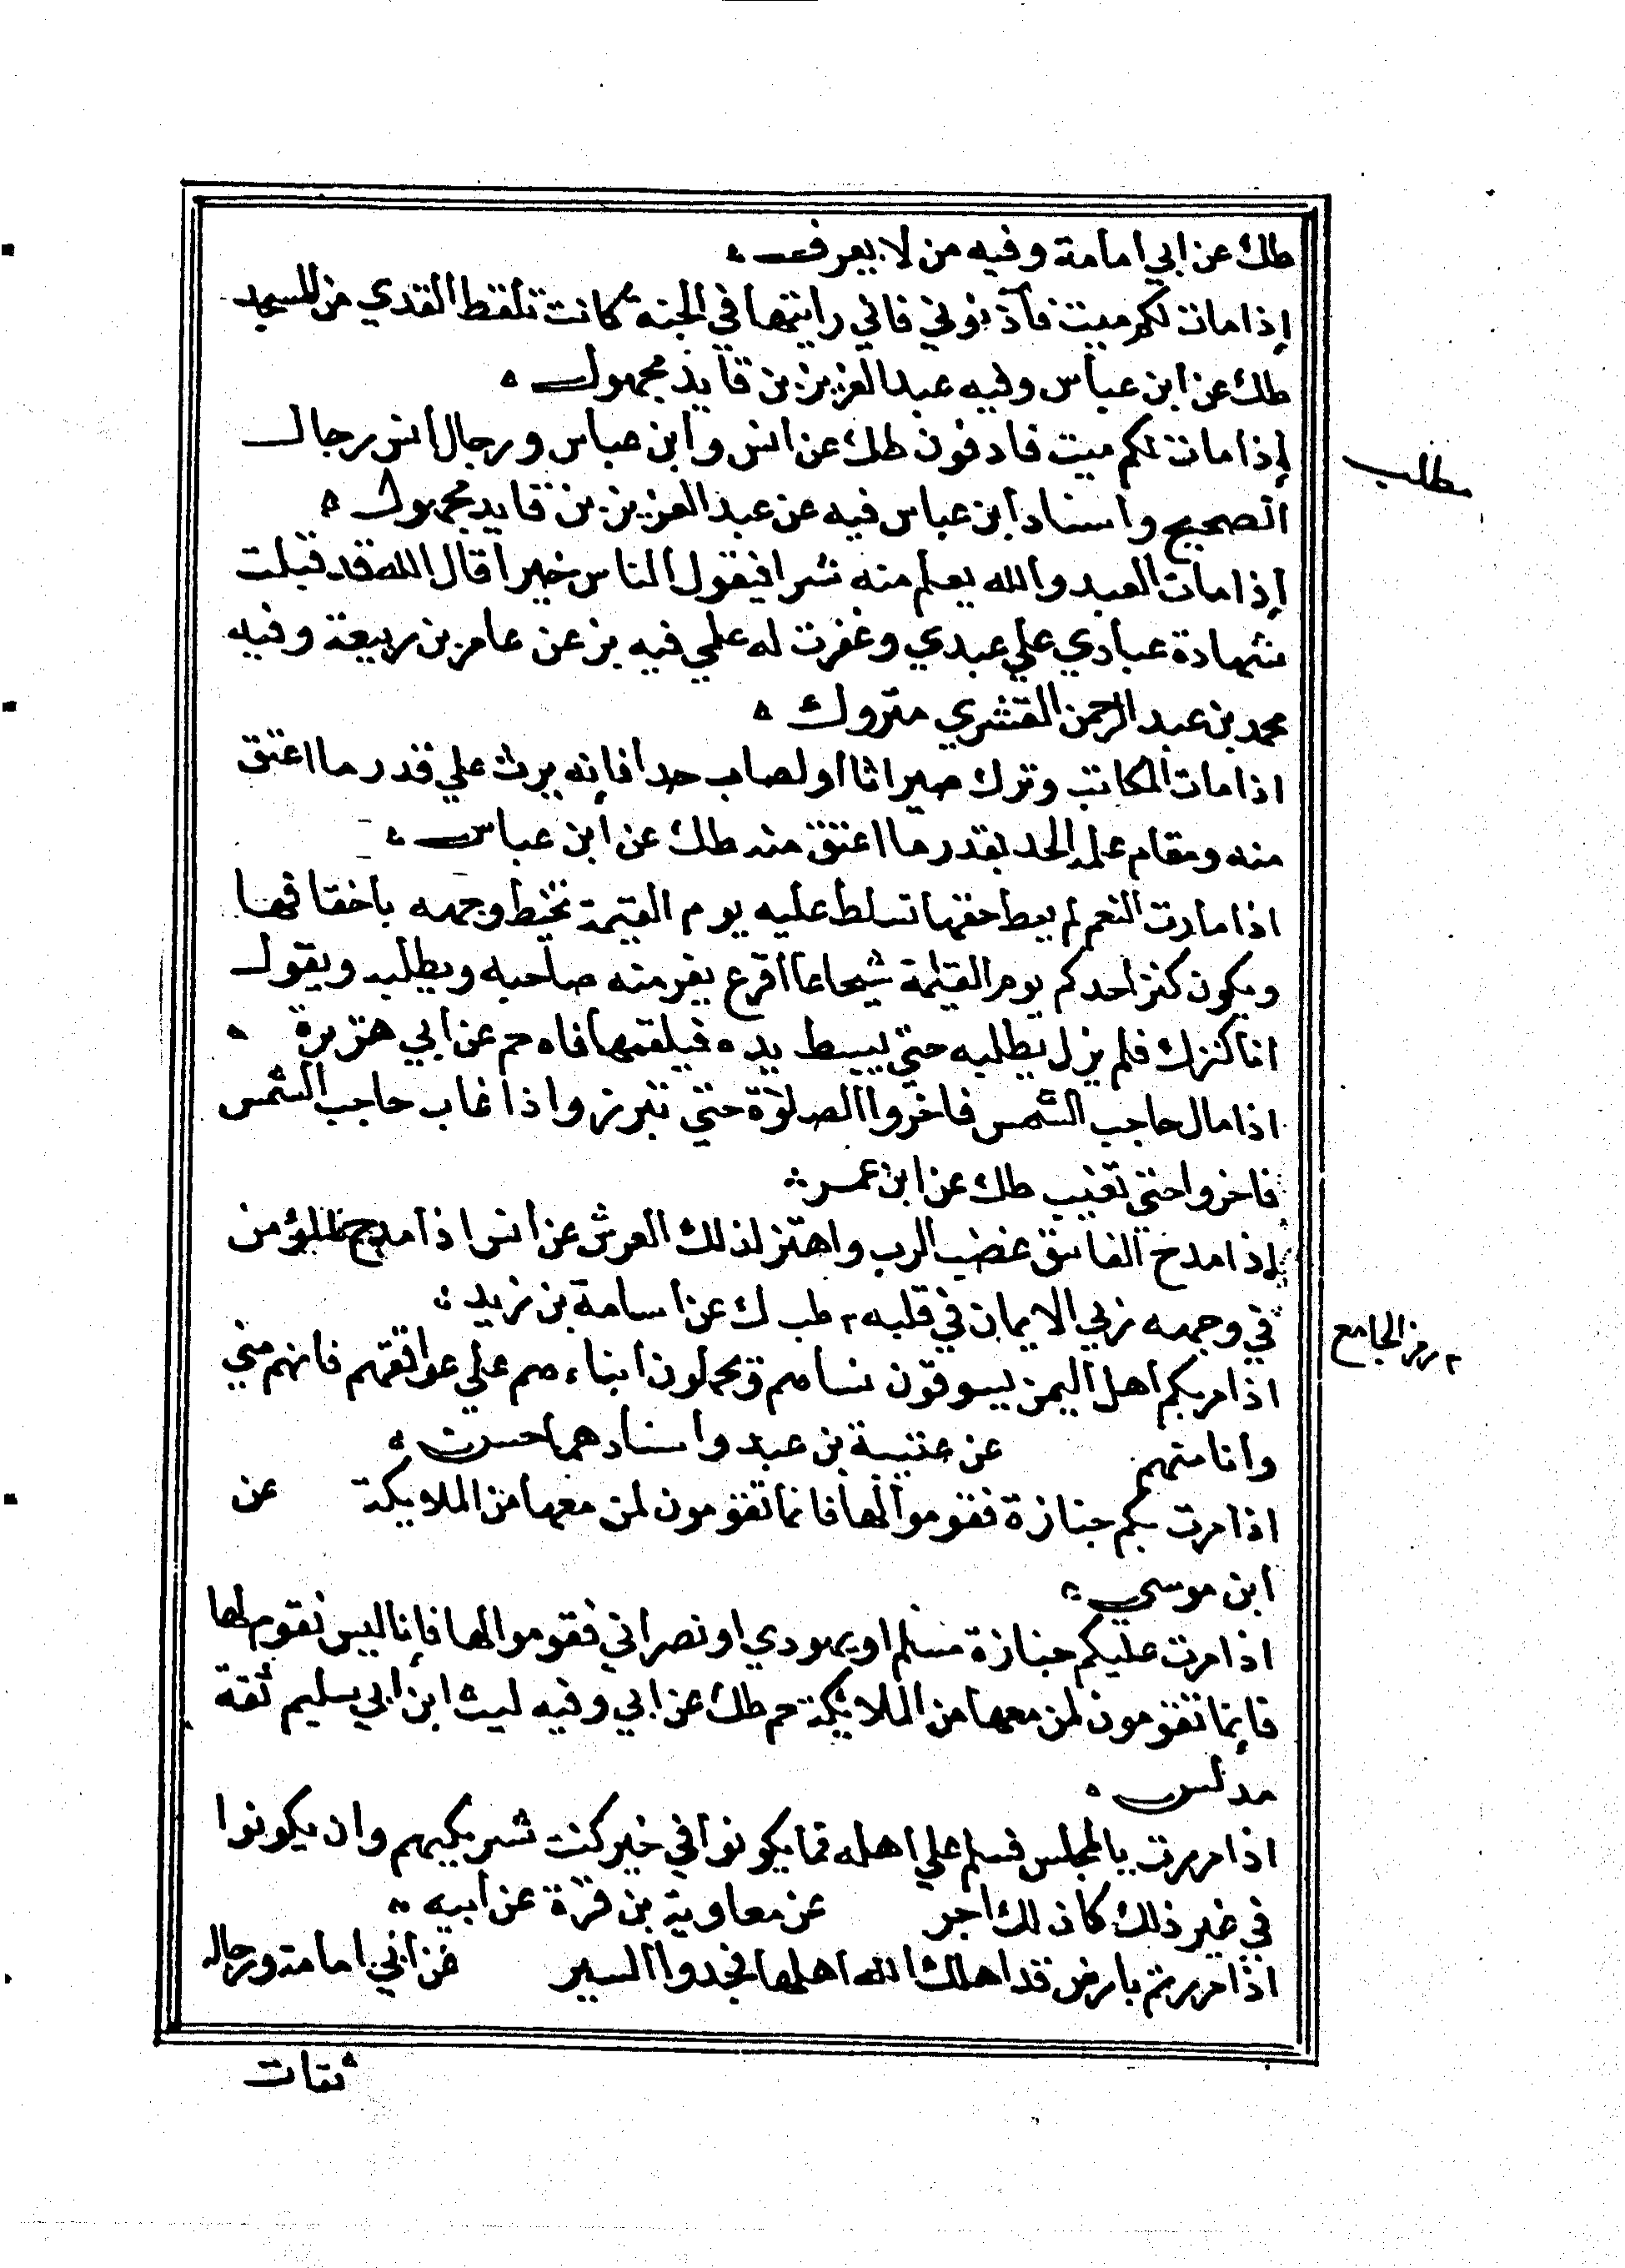 طك عن ابي امامة وفيه من لا يعرف
إذا مات لكم ميت فآذنوني فاني رايتها في الجنة كانت تلقط القدي من المسجد
طك عن ابن عباس وفيه عبد العزيز بن قايد مجهول
إذا مات لكم ميت فادفون طك عن انس وابن عباس ورجال انس رجال
مطلب
الصحيح واسناد ابن عباس فيه عن عبد العزيز بن قايد مجهول
إذا مات العبد والله يعلم منه شرا فيقول الناس خيرا قال الله قد قبلت
شهادة عبادي علي عبدي وغفرت له علمي فيه بز عن عامر بن ربيعة وفيه
محمد بن عبد الرحمن القشري متروك
اذا مات المكاتب وترك ميراثا اولصاب حدا فإنه يرث علي قدر ما اعتق
منه ومقام عليه الحد بقدر ما اعتق منه طك عن ابن عباس
اذا مارت النعم لم يعط حقها تسلط عليه يوم القيمة تخبط وجهه باخقافها
ويكون كنز احدكم يوم القيامة شجاعا اقرع يفر منه صاحبه ويطلبه ويقول
انا كنزك فلم يزل يطلبه حتي يبسط يده فيلقمها فاه حم عن ابي هريرة
اذا مال حاجب الشمس فاخروا الصلوة حتي تبرز واذا غاب حاجب الشمس
فاخروا حتي تغيب طك عن ابن عمر
إذا مدح الفاسق غضب الرب واهتز لذلك العرش عن انس اذا مدح المؤمن
في وجهه زبي الايمان في قلبه طب ك عن اسامة بن زيد
م رمز الجامع
اذا مر بكم اهل اليمن يسوقون نساهم ويحملون ابناءهم علي عواتقهم فانهم مني
وانا منهم عن عتبة بن عبد واسنادهما حسن
اذا مرت بكم جنازة فقوموا لها فانما تقومون لمن معها من الملايكة عن
ابن موسي
اذا مرت عليكم جنازة مسلم او يهودي او نصراني فقوموا لها فإنا ليس نقوم لها
فإنما تقومون لمن معها من الملائكة حم طك عن ابي وفيه ليث ابن ابي سليم ثقة
مدلس
اذا مررت بالمجلس فسلم علي اهله فما يكونوا في خير كنت شريكهم وان يكونوا
في غير ذلك كان لك اجر عن معاوية بن قرة عن ابيه
اذا مررتم بارض قد اهلك الله اهلها فجدوا السير عن ابي امامة ورجاله
ثقات